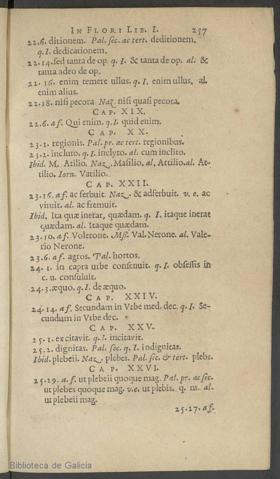 IN FLORI LIB. I. 237
22.6. ditionem. Pal. sec. ac tert. deditionem,
q. I. dedicationem.
22.14. sed tanta de op. q. I. & tanta de op. al. &
tanta adeo de op.
22. 16. enim temere ullus. q. I. enim ullus, al.
enim alius.
22.18. nisi pecora. Naz. nisi quasi pecora.
CAP. XIX.
22.6. a f. Qui enim. q. I. quid enim.
CAP. XX.
23.1. regionis. Pal. pr. ac tert. regionibus.
23.2. incluto. q. I. inclyto. al. cum inclito.
Ibid. M. Atilio. Naz. Masilio, al, Attilio. al. At-
tilio. Iorn. Vatilio.
CAP. XXII.
23.16. a f. ac serbuit. Naz. & adserbuit. v. e. ac
vinuit. al. ac fremuit.
Ibid. Ita quæ inerat, quædam. q. I. itaque inerat
quædam. al. Itaque quædam.
23.10. a f. Volerone. Mss. Val. Nerone. al. Vale-
rio Nerone.
23.6. a f. agros. Pal. hortos.
24. 1. in capta urbe consenuit. q. I. obsessis in
c. u. consuluit.
24.3. æquo. q. I. de æquo.
CAP. XXIV.
24.14. a f. Secundam in Vrbe med. dec. q. I. Se-
cundum in Vrbe dec.
CAP. XXV.
25.1. excitavit. q. I. incitavit.
25.2. dignitas. Pal. sec. q. I. indignitas.
Ibid. plebeii. Naz. plebei. Pal. sec & tert. plebs.
CAP. XXVI.
25.19. a. f. ut plebeii quoque mag. Pal. pr. ac sec.
ut plebes quoque mag. v. e. ut plebis. q. m. al.
ut plebeii mag.
25.17. a f.
Biblioteca de Galicia